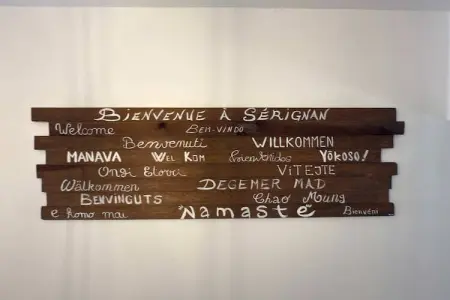 BIENVENUE À SÉRIGNAN
Welcome BEM-VINDO
Benvenuti WILLKOMMEN
MANAVA WEL KOM Bienvenidos YÔKOSO!
Ongi Etorri VíTEJTE
Wälkommen DEGEMER MAD
BENVINGUTS Chao Mung
e komo mai Namasté Bienvéni